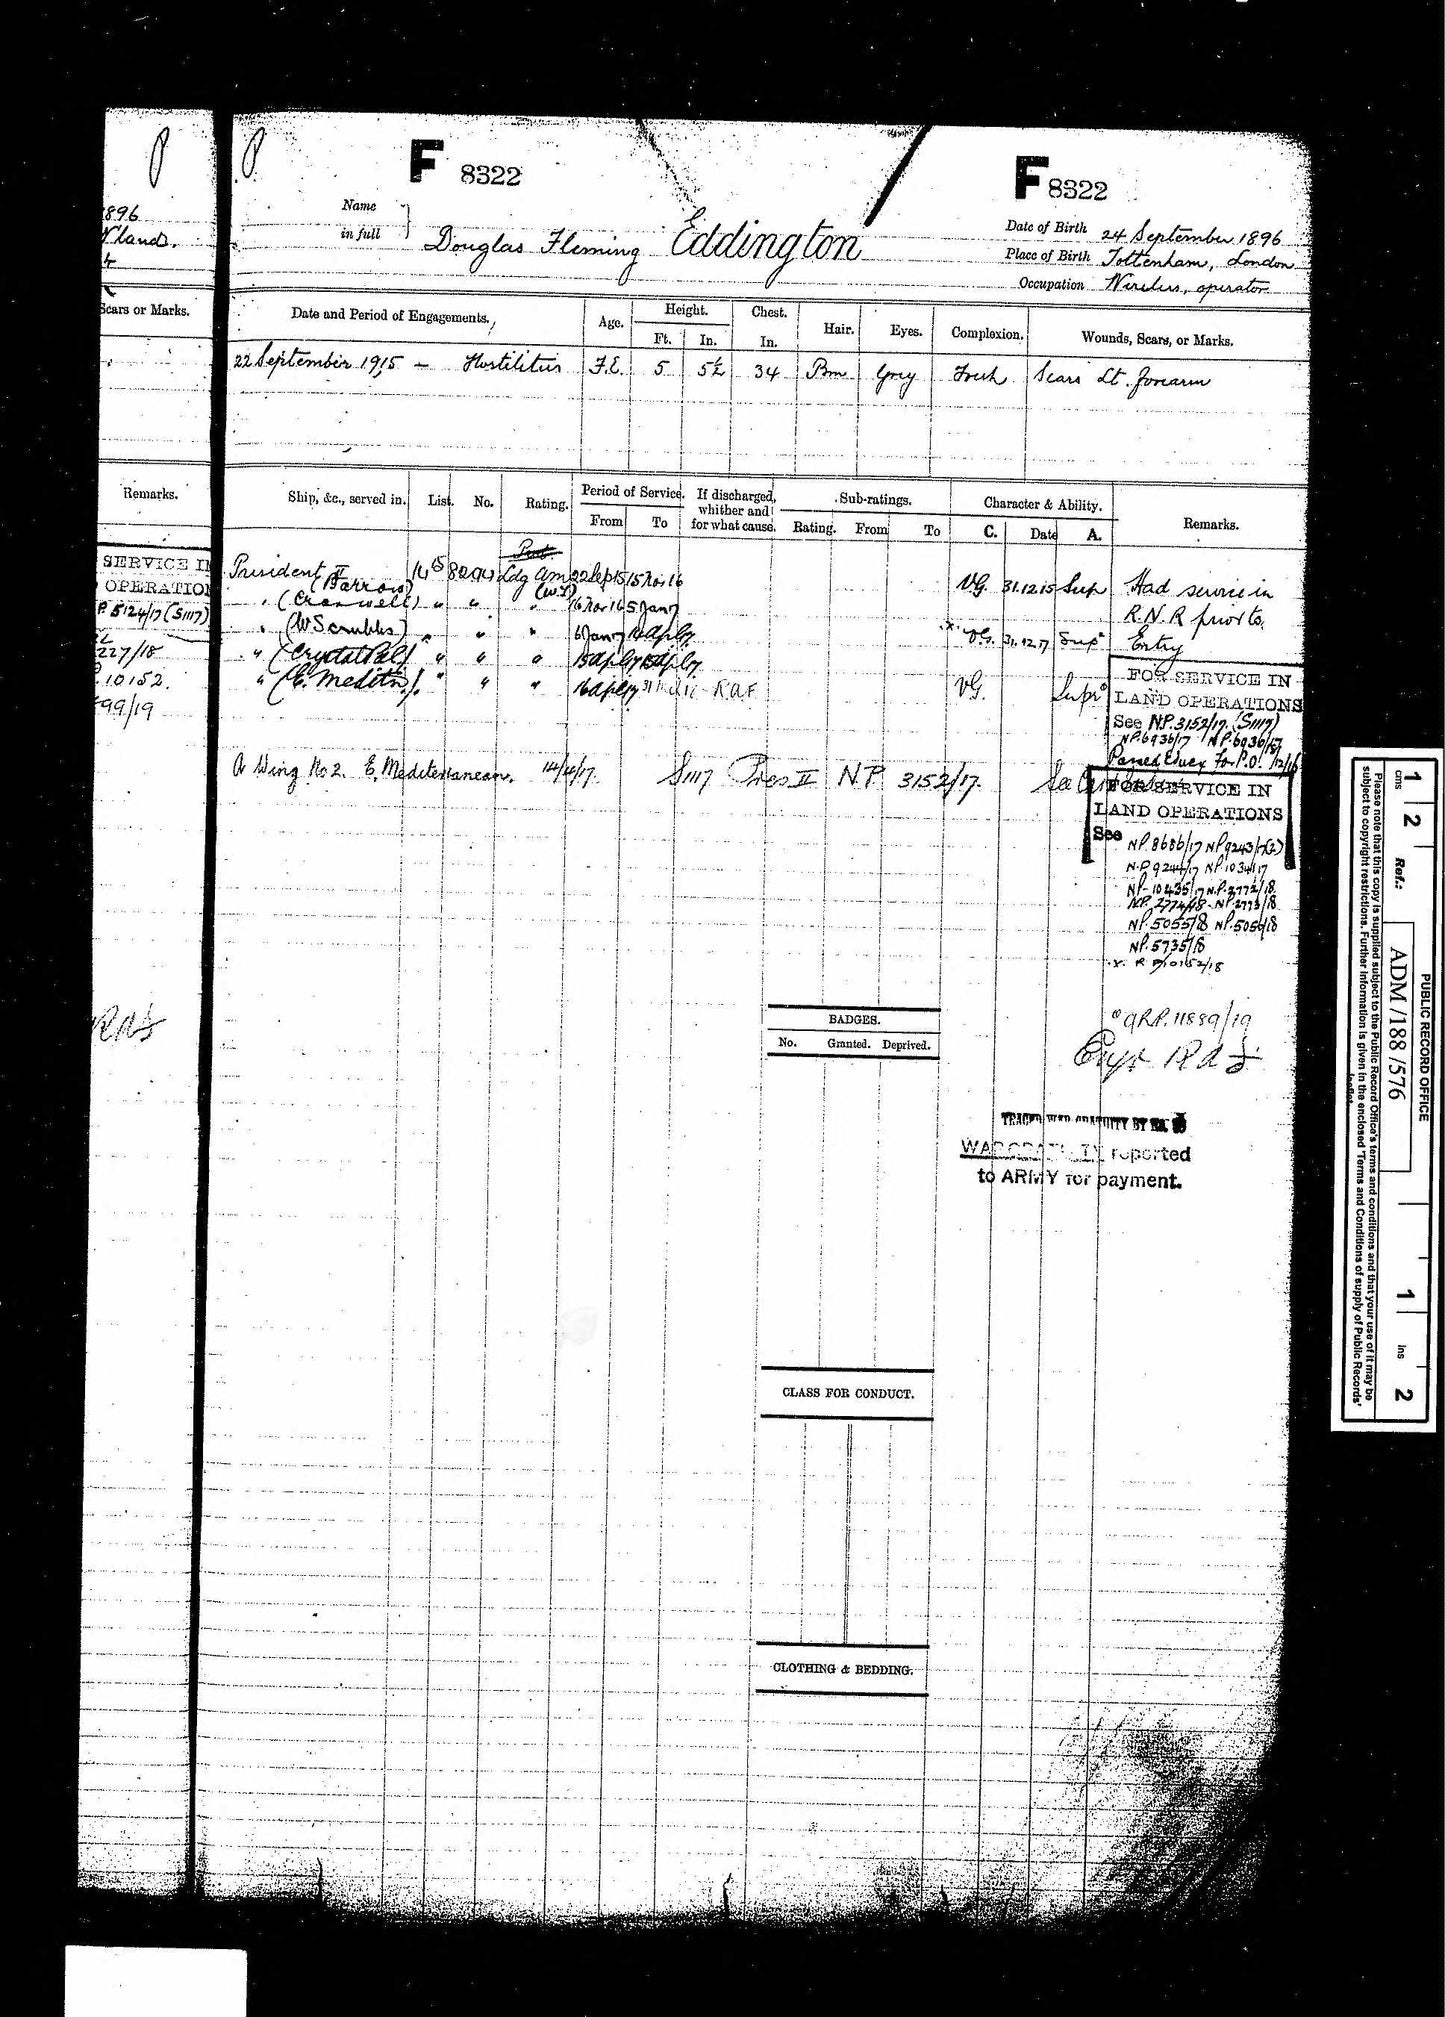 1896
N'land.
Scars or Marks.
Remarks.
SERVICE IN
OPERATION
P. 5124/17 (S1117)
227/18
10152.
99/19
RAF
F 8322
F 8322
Name in full
Douglas Fleming Eddington
Date of Birth 24 September 1896
Place of Birth Tottenham, London
Occupation Wireless operator
Date and Period of Engagements. Age. Height. Ft. In. Chest. In. Hair. Eyes. Complexion. Wounds, Scars, or Marks.
22 September 1915 – Hostilities F.E. 5 5½ 34 Brn Grey Fresh Scars Lt. forearm
Ship, &c., served in. List. No. Rating. Period of Service. From To If discharged, whither and for what cause. Sub-ratings. Rating. From To Character & Ability. C. Date A. Remarks.
President II
(Barrow) 14 8094 Ldg Am (W.T.) 22 Sep 15 15 Nov 16 VG. 31.12.15 Sup Had service in
" (Cranwell) " " " 16 Nov 16 5 Jan 17 R.N.R prior to
" (W Scrubbs) " " " 6 Jan 17 VG. 31.12.17 Sup Entry
" (Crystal Pal) " " "
" (E. Meditn) " " " 16 Apl 17 RAF VG. Supr
FOR SERVICE IN
LAND OPERATIONS
See N.P. 3152/17. (S1117)
NP. 6936/17
Passed Educ For P.O. 12/16
A Wing No 2. E. Mediterranean. 14/4/17. S1117 Pres II N.P. 3152/17.
FOR SERVICE IN
LAND OPERATIONS
See
NP 8686/17 NP 9243/17(2)
N.P 9244/17 NP 10341/17
NP-10435/17 N.P. 2772/18.
NP. 2774/18 - NP. 2773/18
NP. 5055/18 NP. 5056/18
NP. 5735/18
BADGES.
No. Granted. Deprived.
RAF
WAR GRATUITY reported
to ARMY for payment.
CLASS FOR CONDUCT.
CLOTHING & BEDDING.
1 cms 2 1 ins 2
Ref.: ADM/188/576
PUBLIC RECORD OFFICE
Please note that this copy is supplied subject to the Public Record Office's terms and conditions and that your use of it may be
subject to copyright restrictions. Further information is given in the enclosed 'Terms and Conditions of supply of Public Records'
leaflet